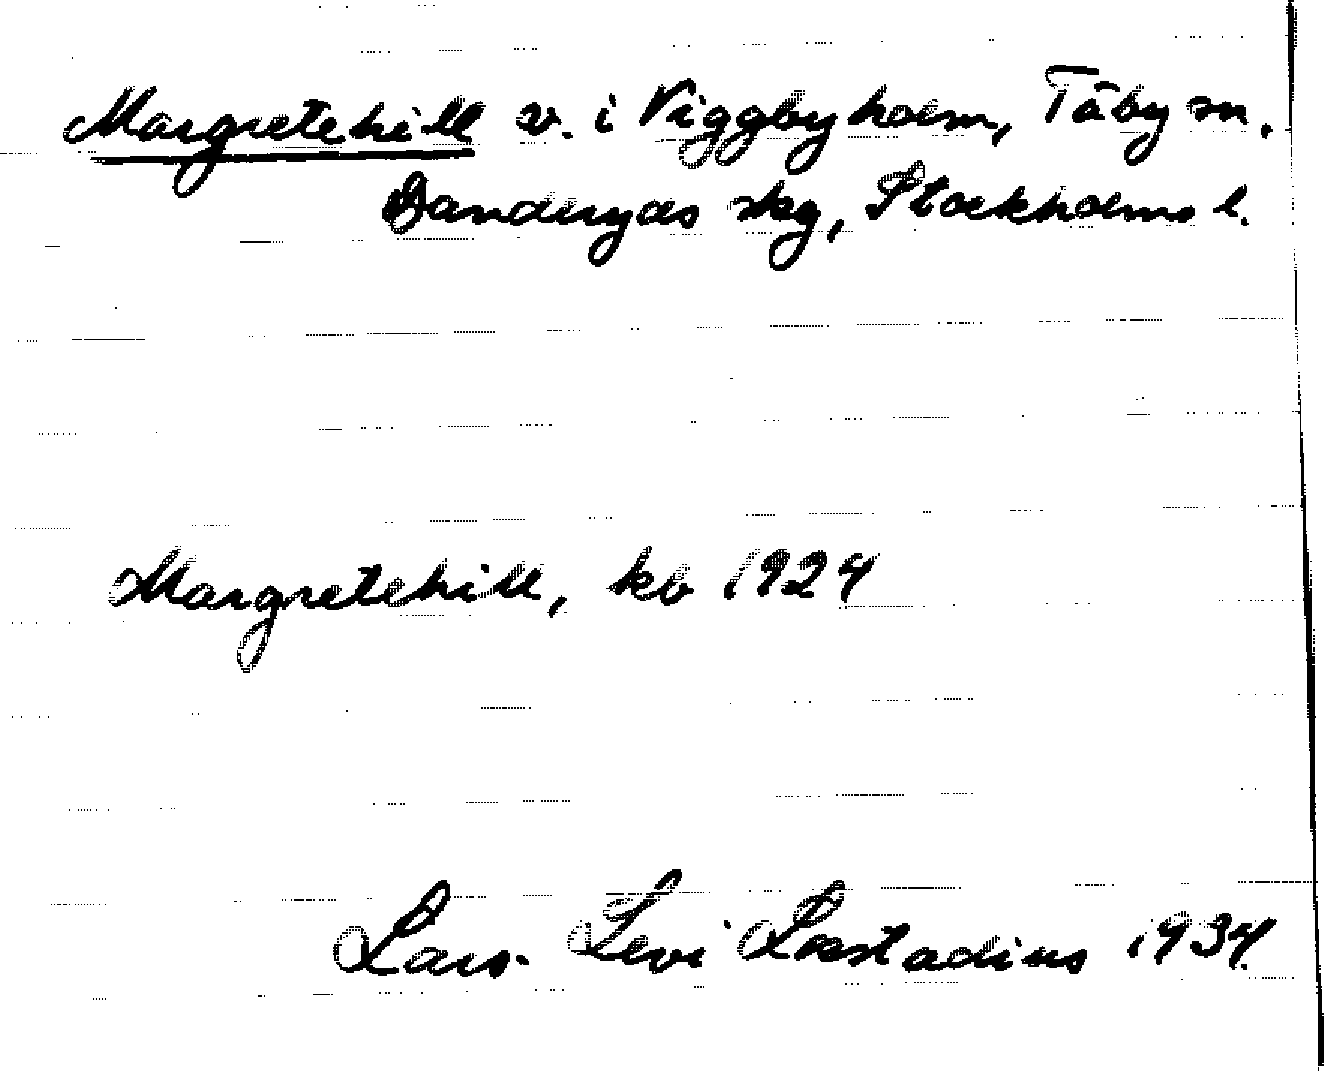 Margretehill v. i Viggbyholm, Täby sn.
Danderyds skg, Stockholms l.
Margretehill, kb 1924
Lars-Levi Læstadius 1934.